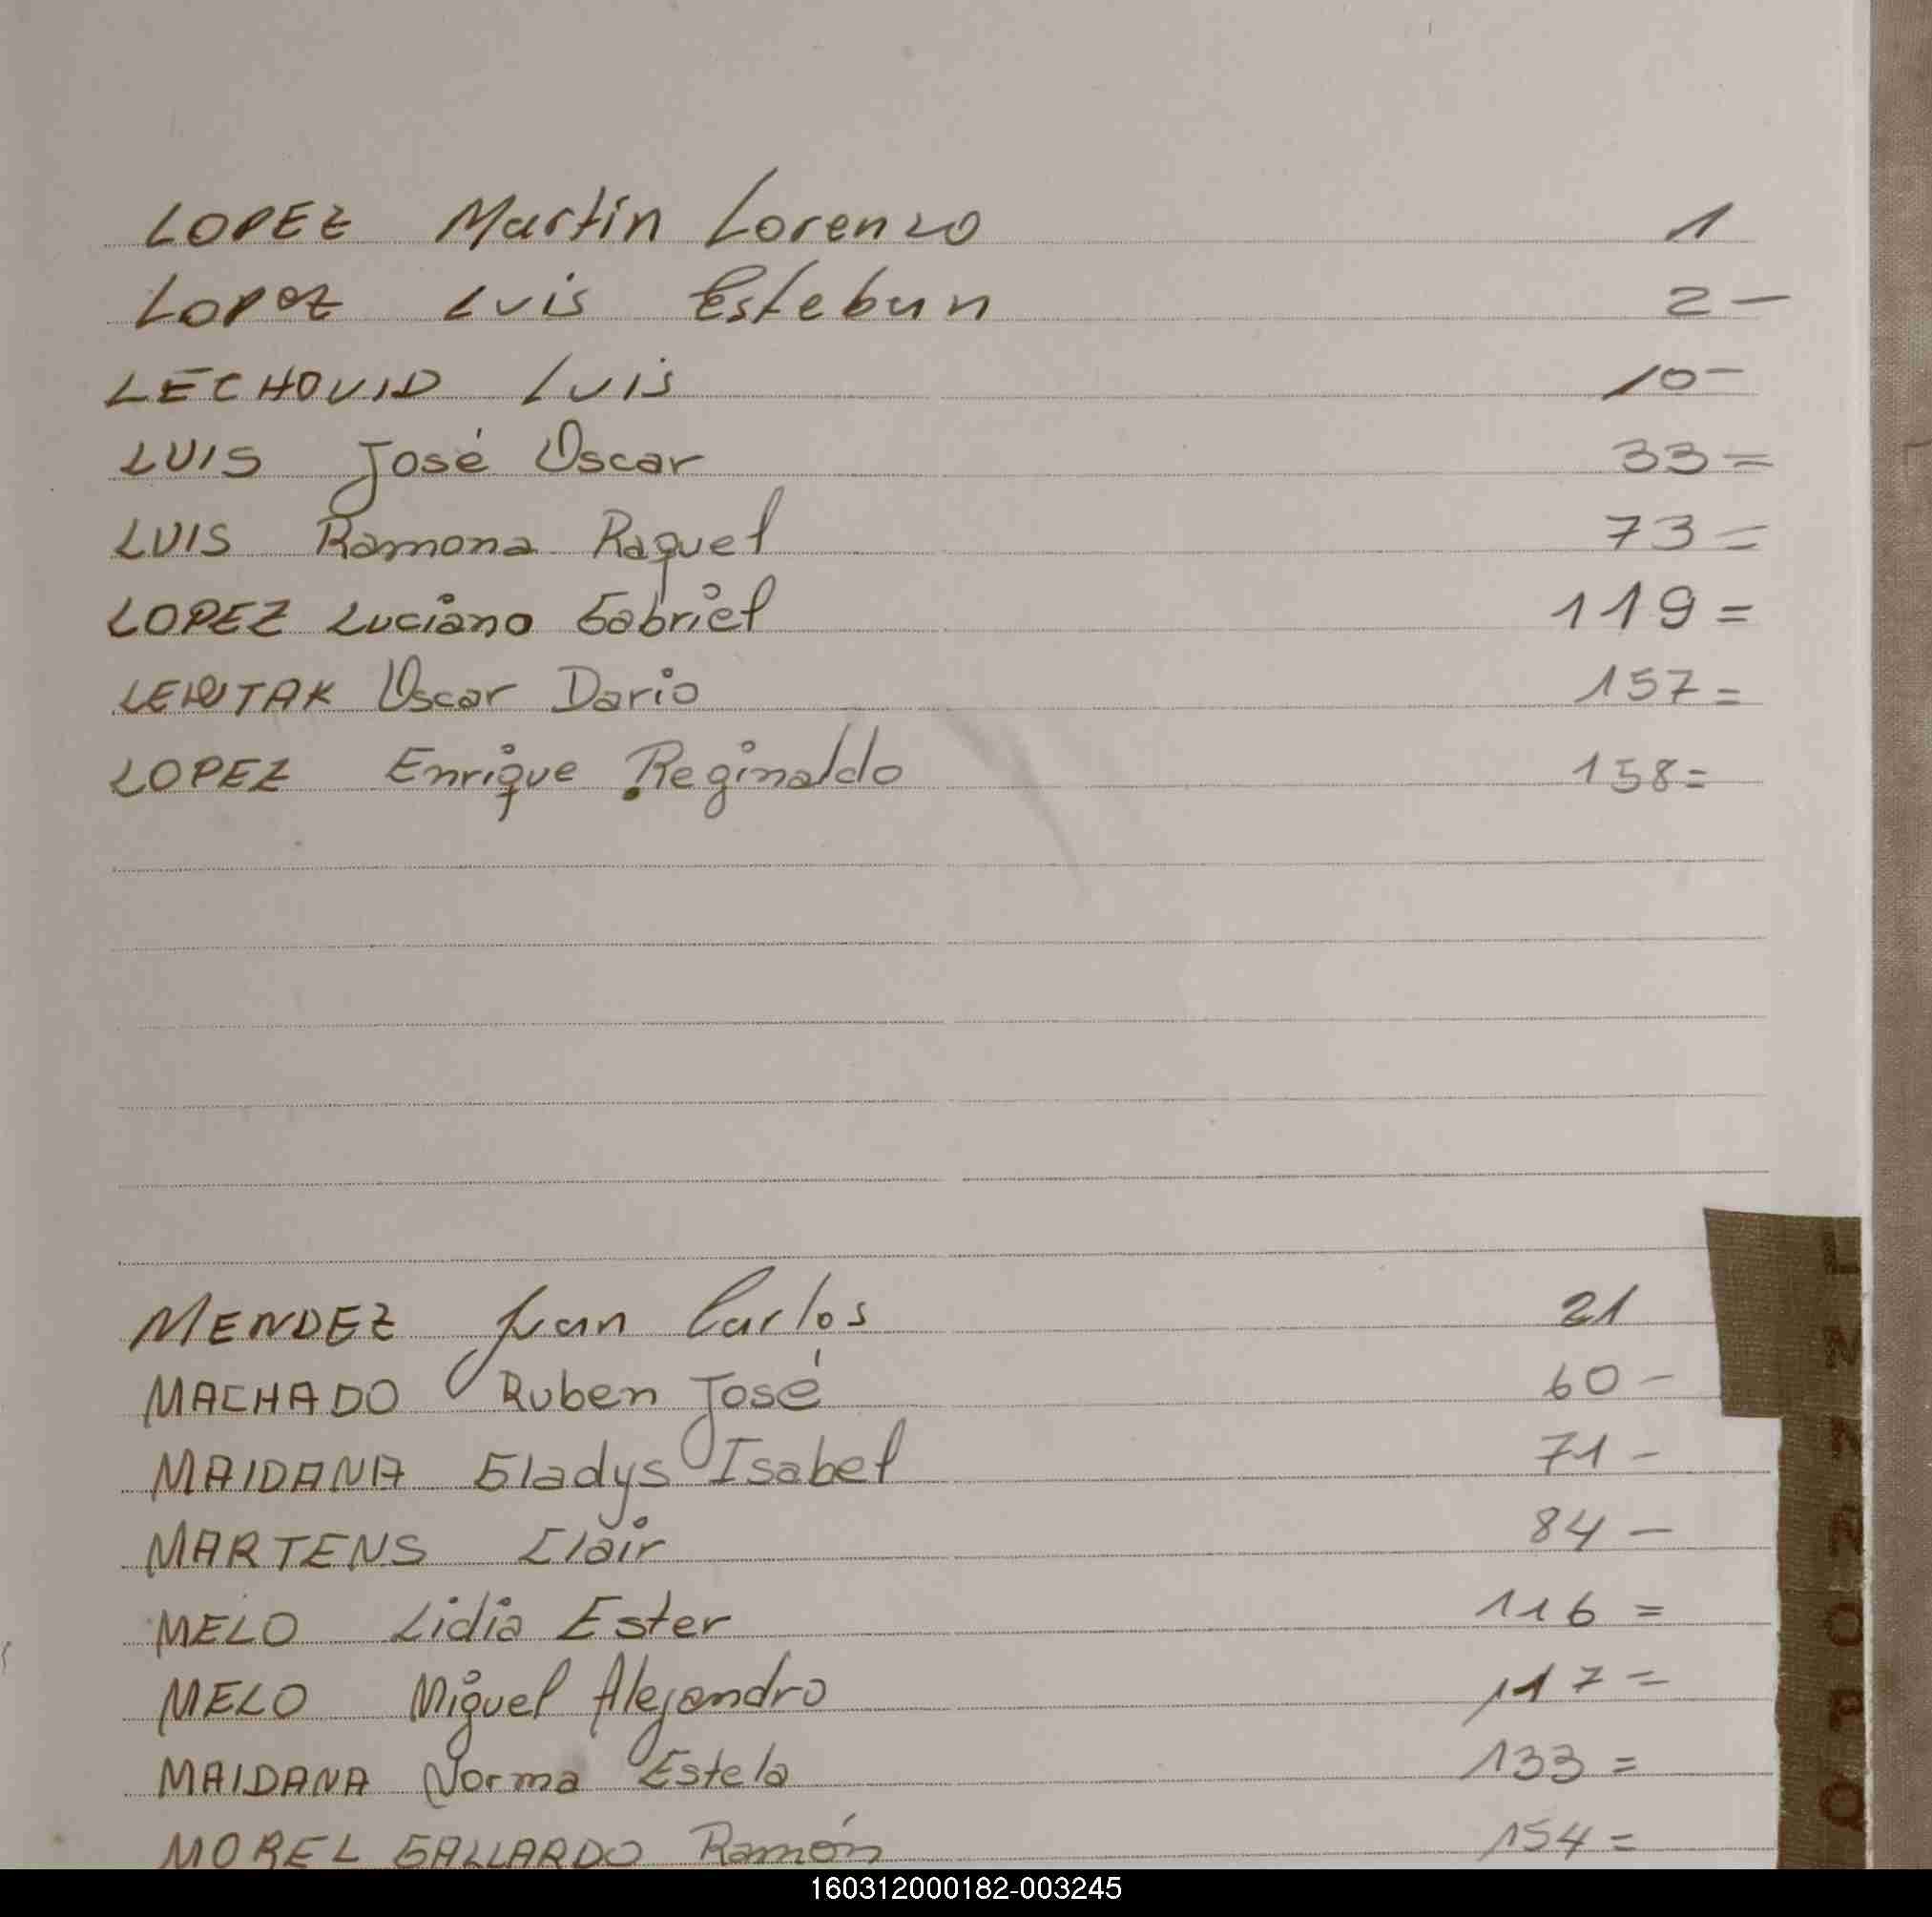 LOPEZ Martin Lorenzo 1
LOPEZ Luis Esteban 2 -
LECHOVID Luis 10 -
LUIS José Oscar 33 =
LUIS Ramona Raquel 73 =
LOPEZ Luciano Gabriel 119 =
LEWTAK Oscar Dario 157 =
LOPEZ Enrique Reginaldo 158 =
MENDEZ Juan Carlos 21
MACHADO Ruben José 60 -
MAIDANA Gladys Isabel 71 -
MARTENS Clair 84 -
MELO Lidia Ester 116 =
MELO Miguel Alejandro 117 =
MAIDANA Norma Estela 133 =
MOREL GALLARDO Ramón 154 =
L
M
N
Ñ
O
P
Q
160312000182-003245